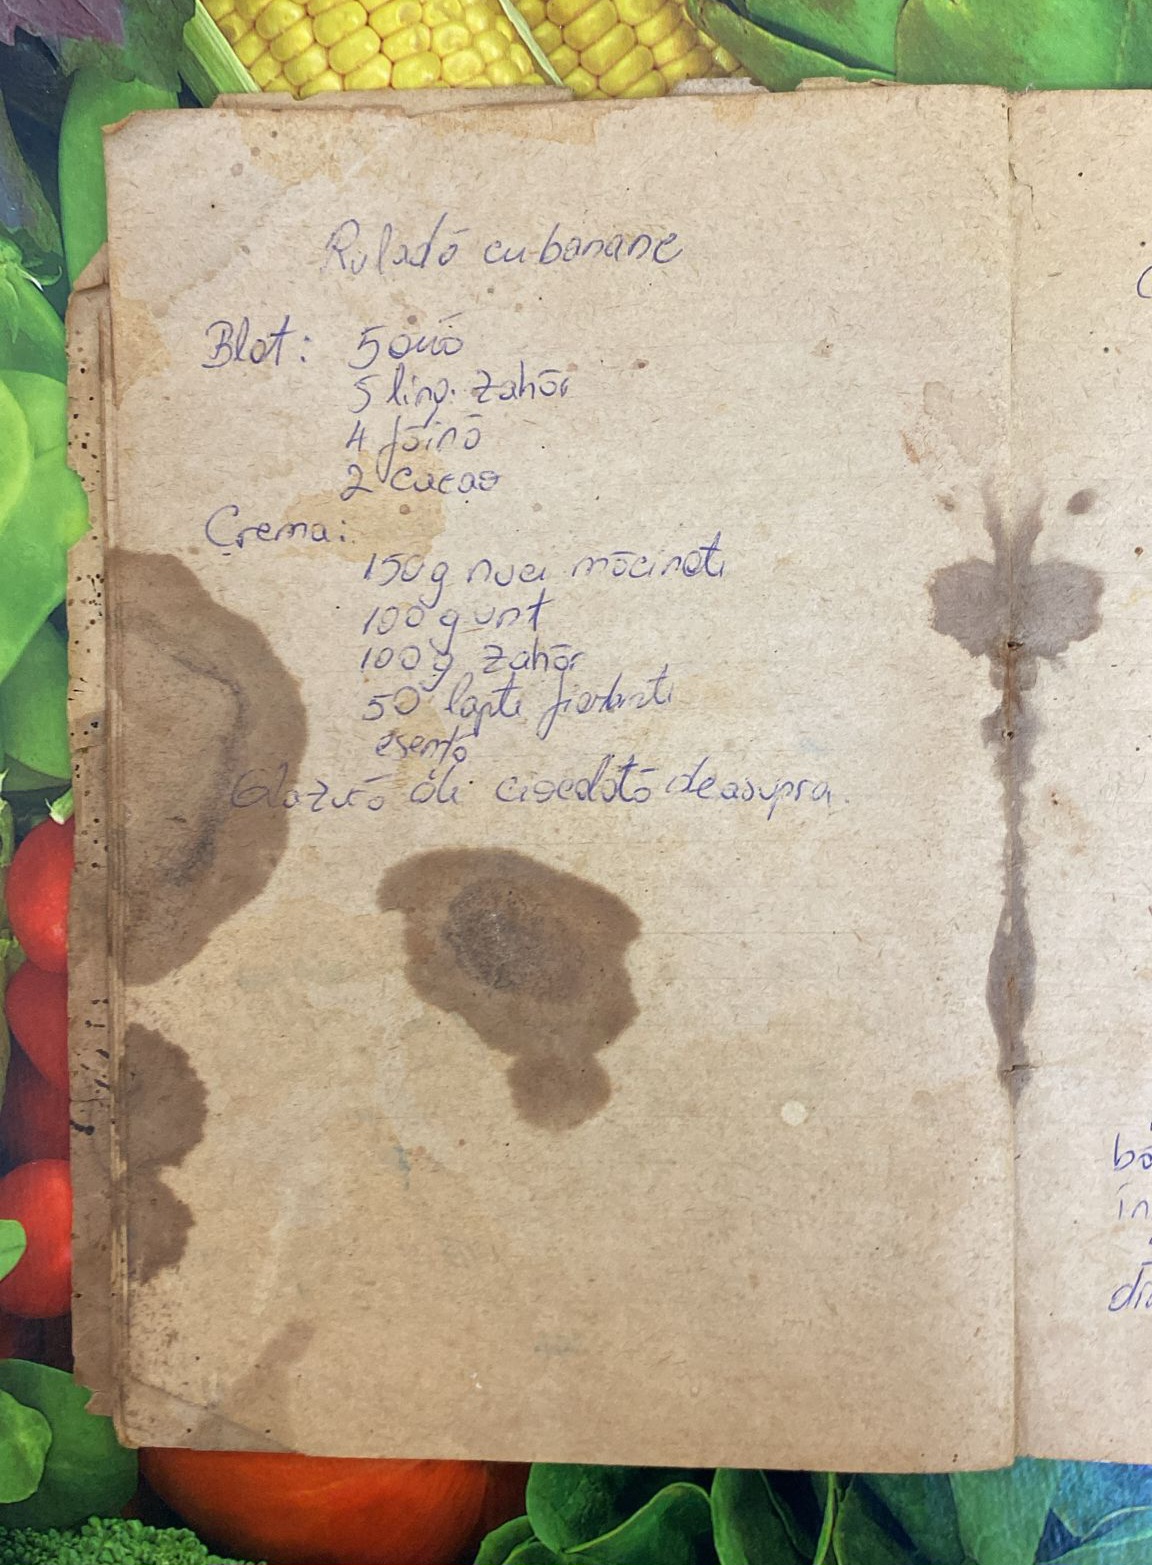 Ruladă cu banane
Blat: 5 ouă
5 ling. zahăr
4 făină
2 cacao
Crema:
150 g nuci măcinate
100 g unt
100 g zahăr
50 lapte fierbinte
esență
Glazură de ciocolată deasupra.
bă
în